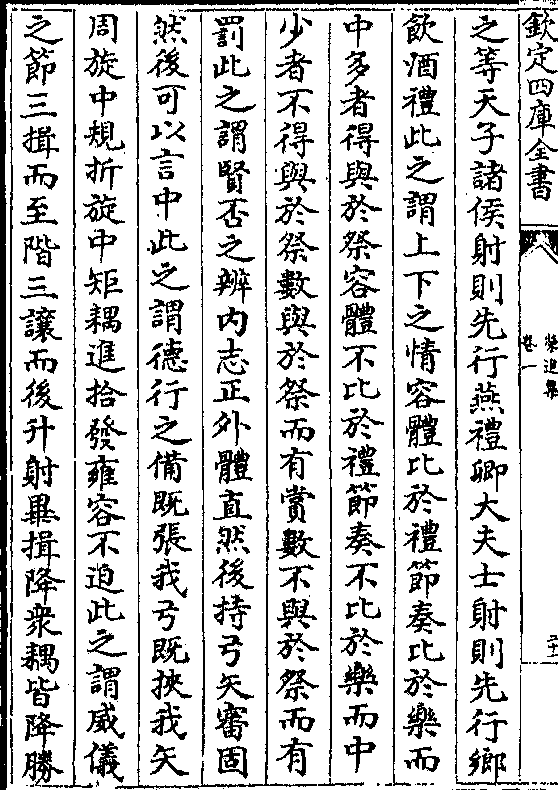 欽定四庫全書
榮進集
卷一
二十一
之等天子諸侯射則先行燕禮卿大夫士射則先行鄉
飲酒禮此之謂上下之情容體比於禮節奏比於樂而
中多者得與於祭容體不比於禮節奏不比於樂而中
少者不得與於祭數與於祭而有賞數不與於祭而有
罰此之謂賢否之辨内志正外體直然後持弓矢審固
然後可以言中此之謂德行之備既張我弓既挾我矢
周旋中規折旋中矩耦進拾發雍容不迫此之謂威儀
之節三揖而至階三讓而後升射畢揖降衆耦皆降勝